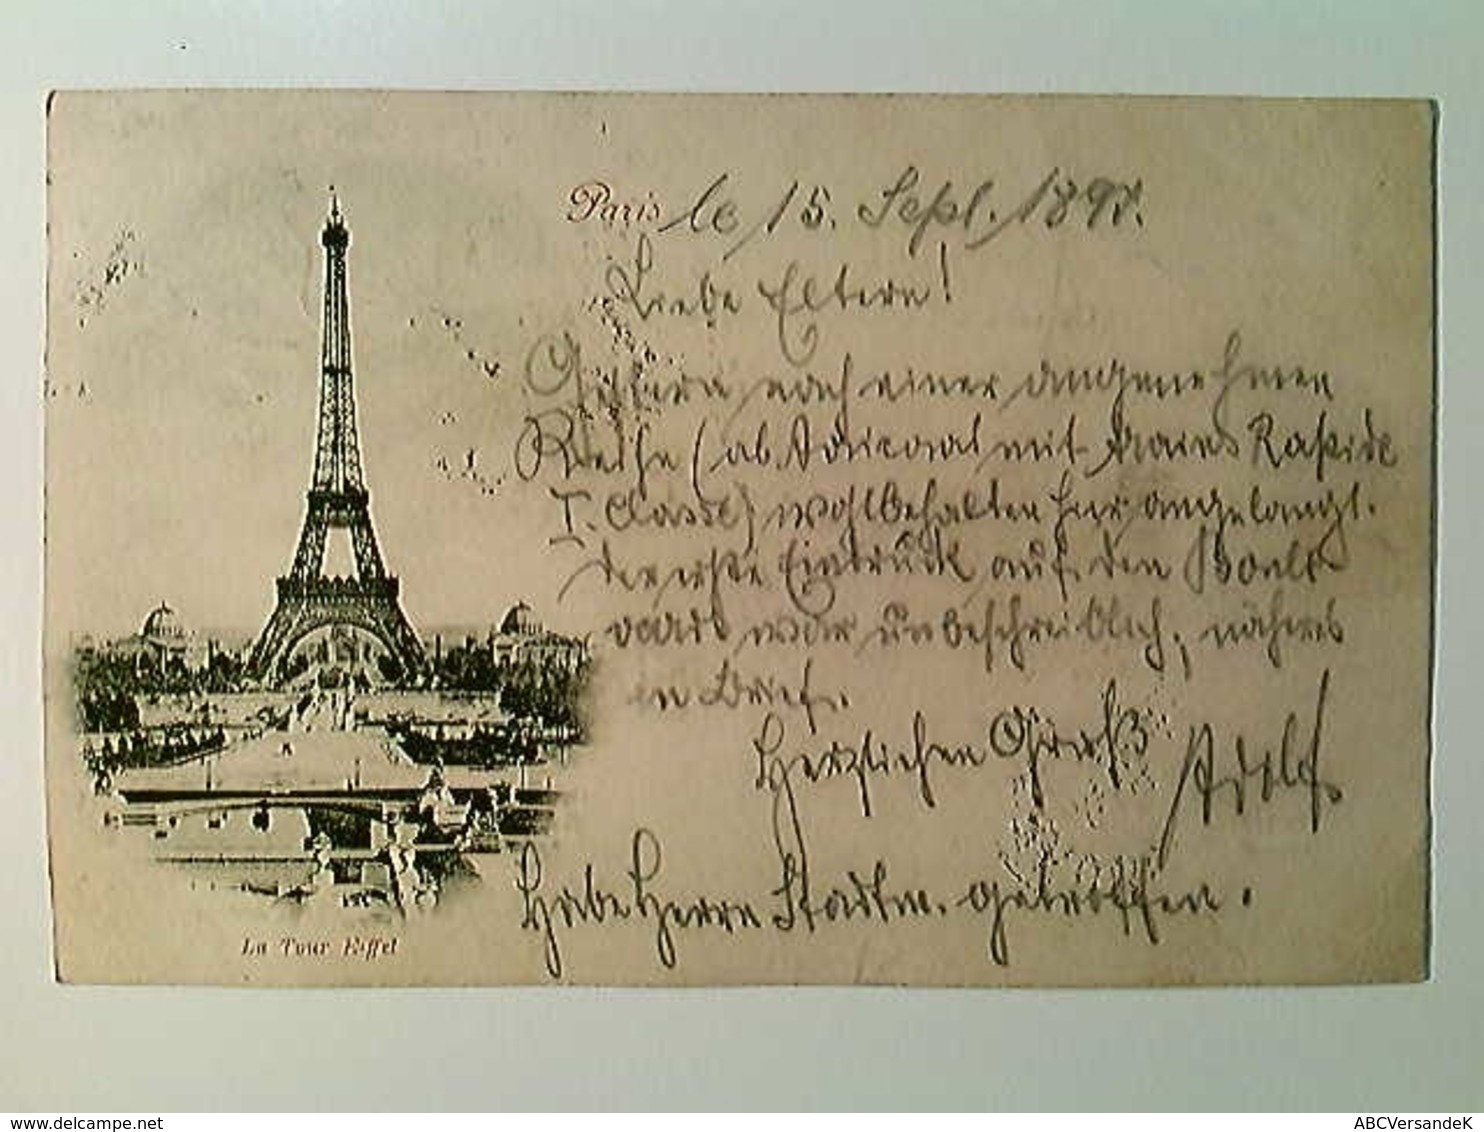 Paris le 15. Sept. 1897.
Liebe Eltern!
Gestern nach einer angenehmen
Reise (ab mit Rapide
I. Classe) wohlbehalten hier angelangt.
Der erste Eindruck auf den Boule-
vards war unbeschreiblich, näheres
in Brief.
Herzlichen Gruß Adolf.
Habe Herrn Stadtm. getroffen.
La Tour Eiffel
ABCVersandeK